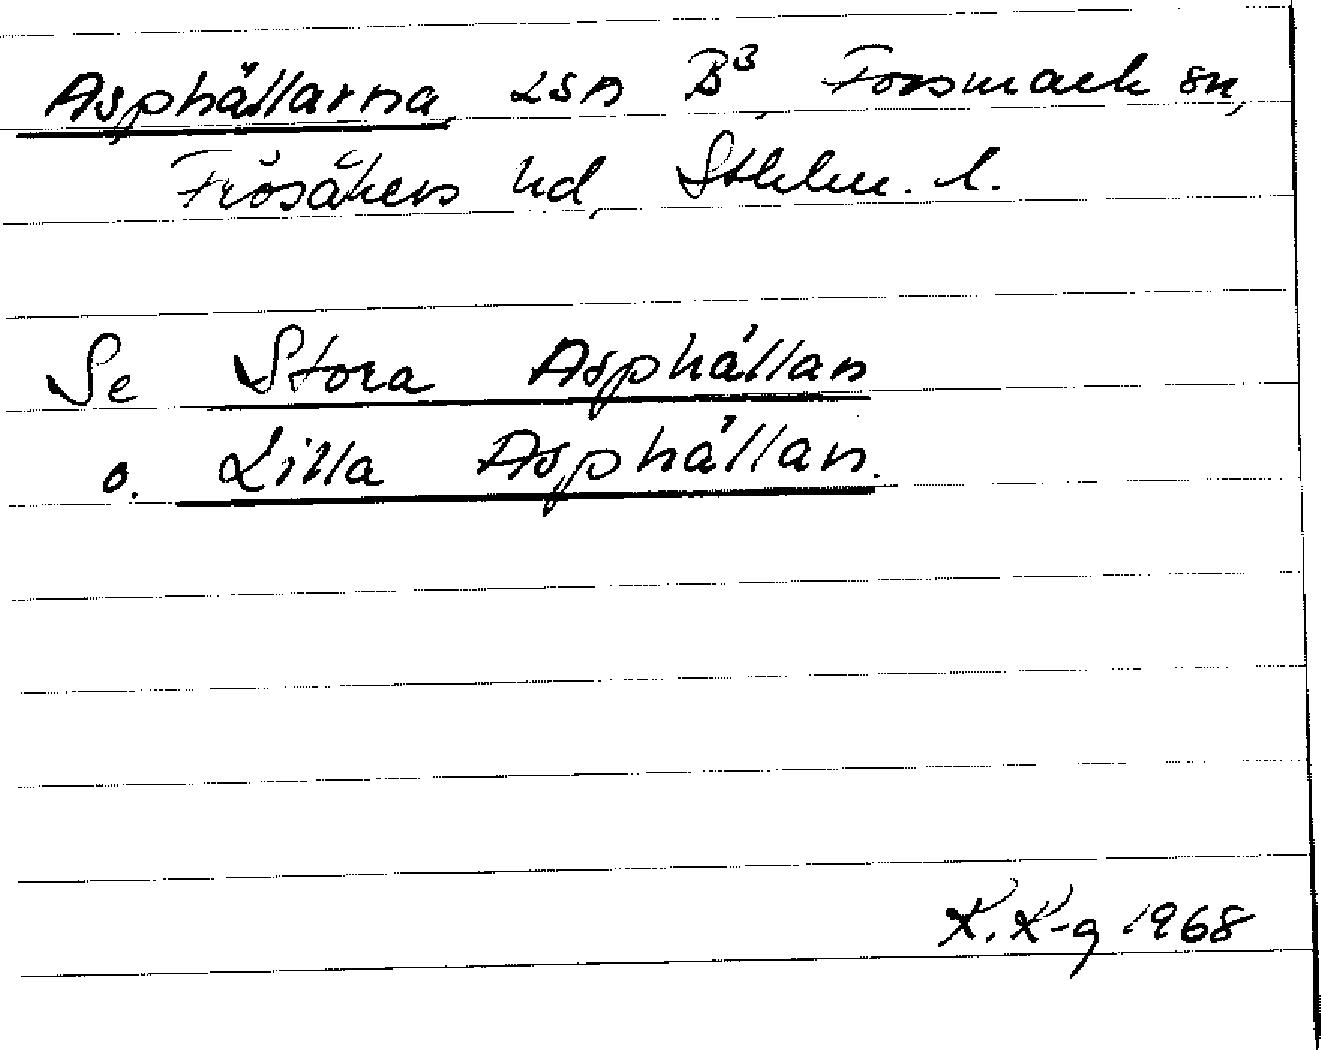 Asphällarna LSA B³, Forsmark sn,
Frösåkers hd, Sthlm. l.
Se Stora Asphällan
o. Lilla Asphällan.
K. K-g 1968